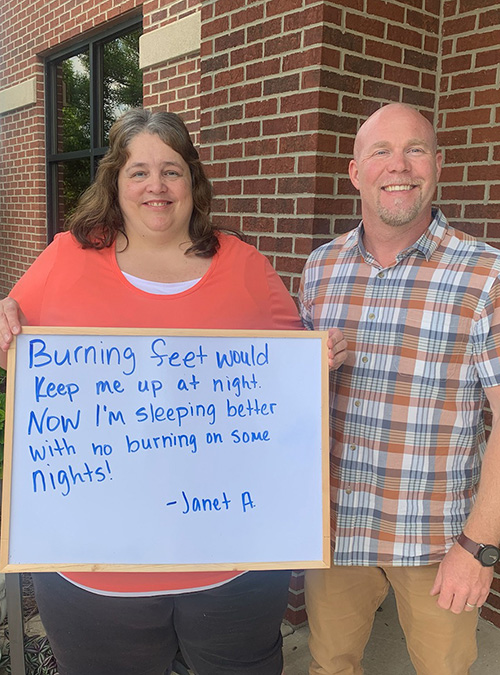 Burning feet would
Keep me up at night.
Now I'm sleeping better
with no burning on some
nights!
-Janet A.